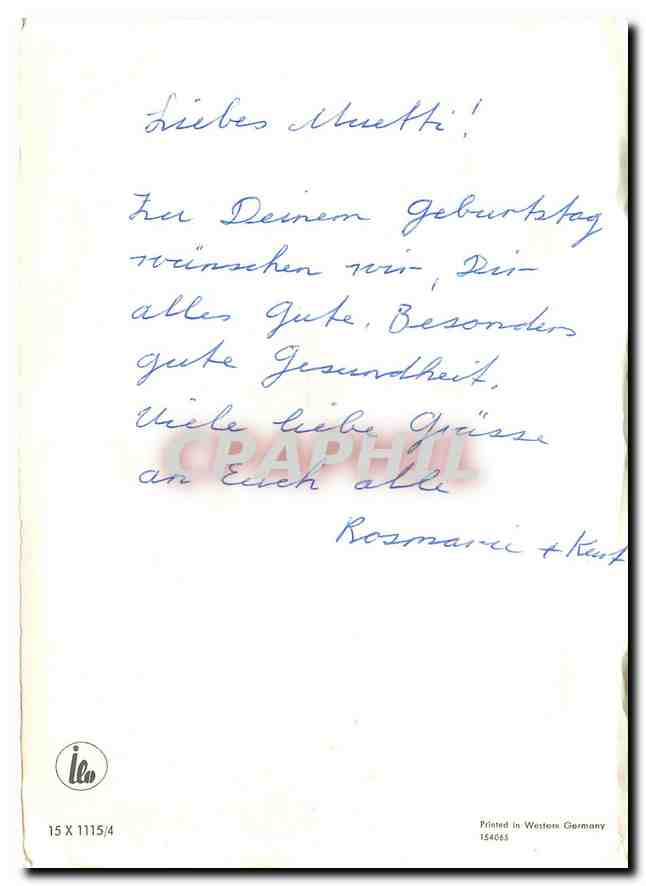 Liebes Muetti!
Zu Deinem Geburtstag
wünschen wir, Dir
alles Gute. Besonders
gute Gesundheit.
Viele liebe Grüsse
CPAPHIL
an Euch alle
Rosmarie + Kurt
ilo
15 X 1115/4
Printed in Western Germany
154065